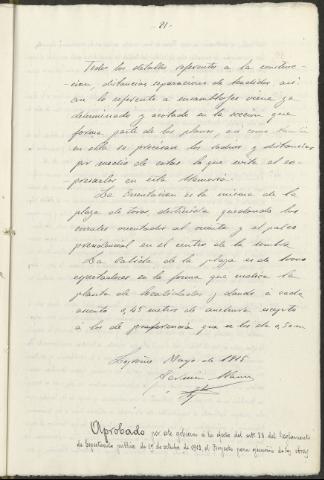 21-
Todos los detalles referentes a la construc-
-cion, distancias separaciones de tendidos asi
con lo referente a ensamblajes viene ya
determinado y acotado en la seccion que
forma parte de los planos, asi como
en ella se precisan los datos y distancias
por medio de cotas lo que evita el ex-
presarlos en esta Memoria.
La Orientacion es la misma de la
plaza de toros destruida quedando los
corrales orientados al oriente y el palco
presidencial en el centro de la sombra
La Cabida de la plaza es de
espectadores en la forma que indica la
planta de localidades y dando a cada
asiento 0,45 metros de anchura excepto
a los de preferencia que se les da 0,50 m.
Logroño Mayo de 1915
Fermín Álamo
Aprobado por este gobierno a los efectos del artº 33 del Reglamento
de Espectáculos públicos de 19 de octubre de 1913, el Proyecto para ejecución de las obras